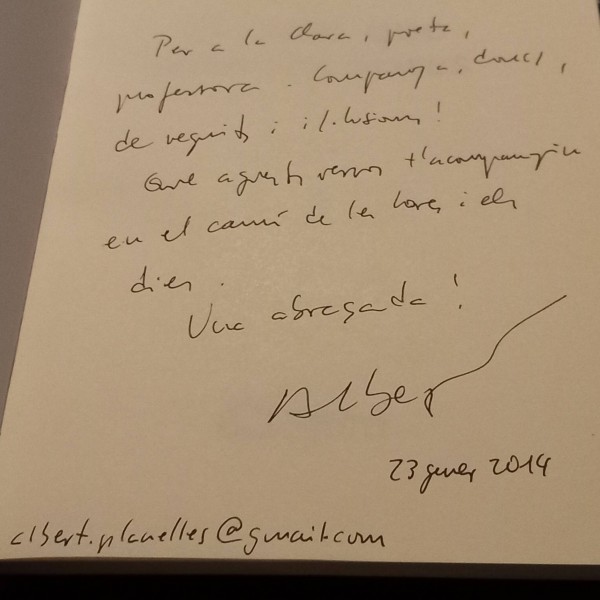 Per a la Clara, poeta,
professora. Companya, doncs,
de neguits i il·lusions!
Que aquests versos t'acompanyin
en el camí de les hores i els
dies.
Una abraçada!
Albert
23 gener 2014
albert.planelles@gmail.com